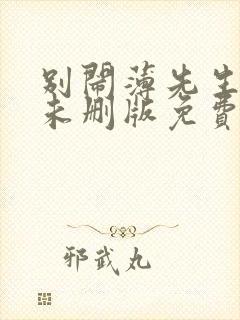 别闹薄先生
未删版免费
邪武丸